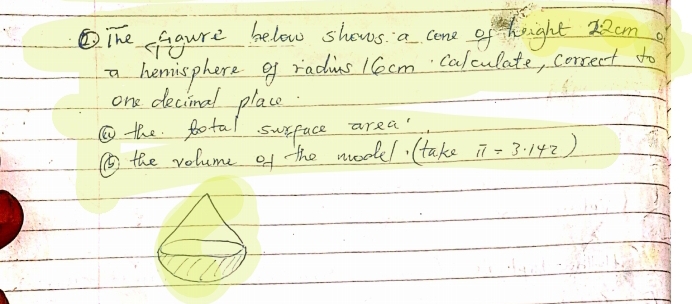 ① The figure below shows a cone of height 22cm o
a hemisphere of radius 16cm. Calculate, correct to
one decimal place.
ⓐ the total surface area.
ⓑ the volume of the model. (take π = 3.142)